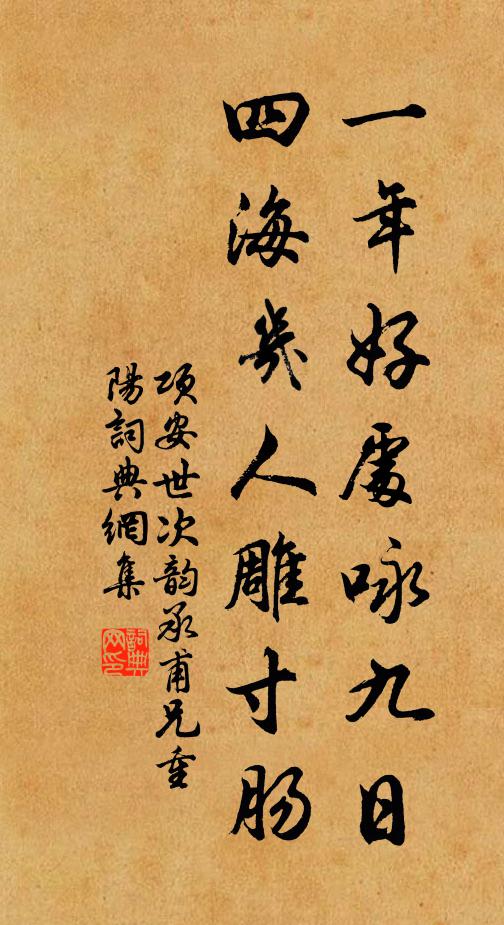 一年好處咏九日
四海幾人雕寸肠
項安世次韵承甫兄重
陽詞典網集
詞典
网印